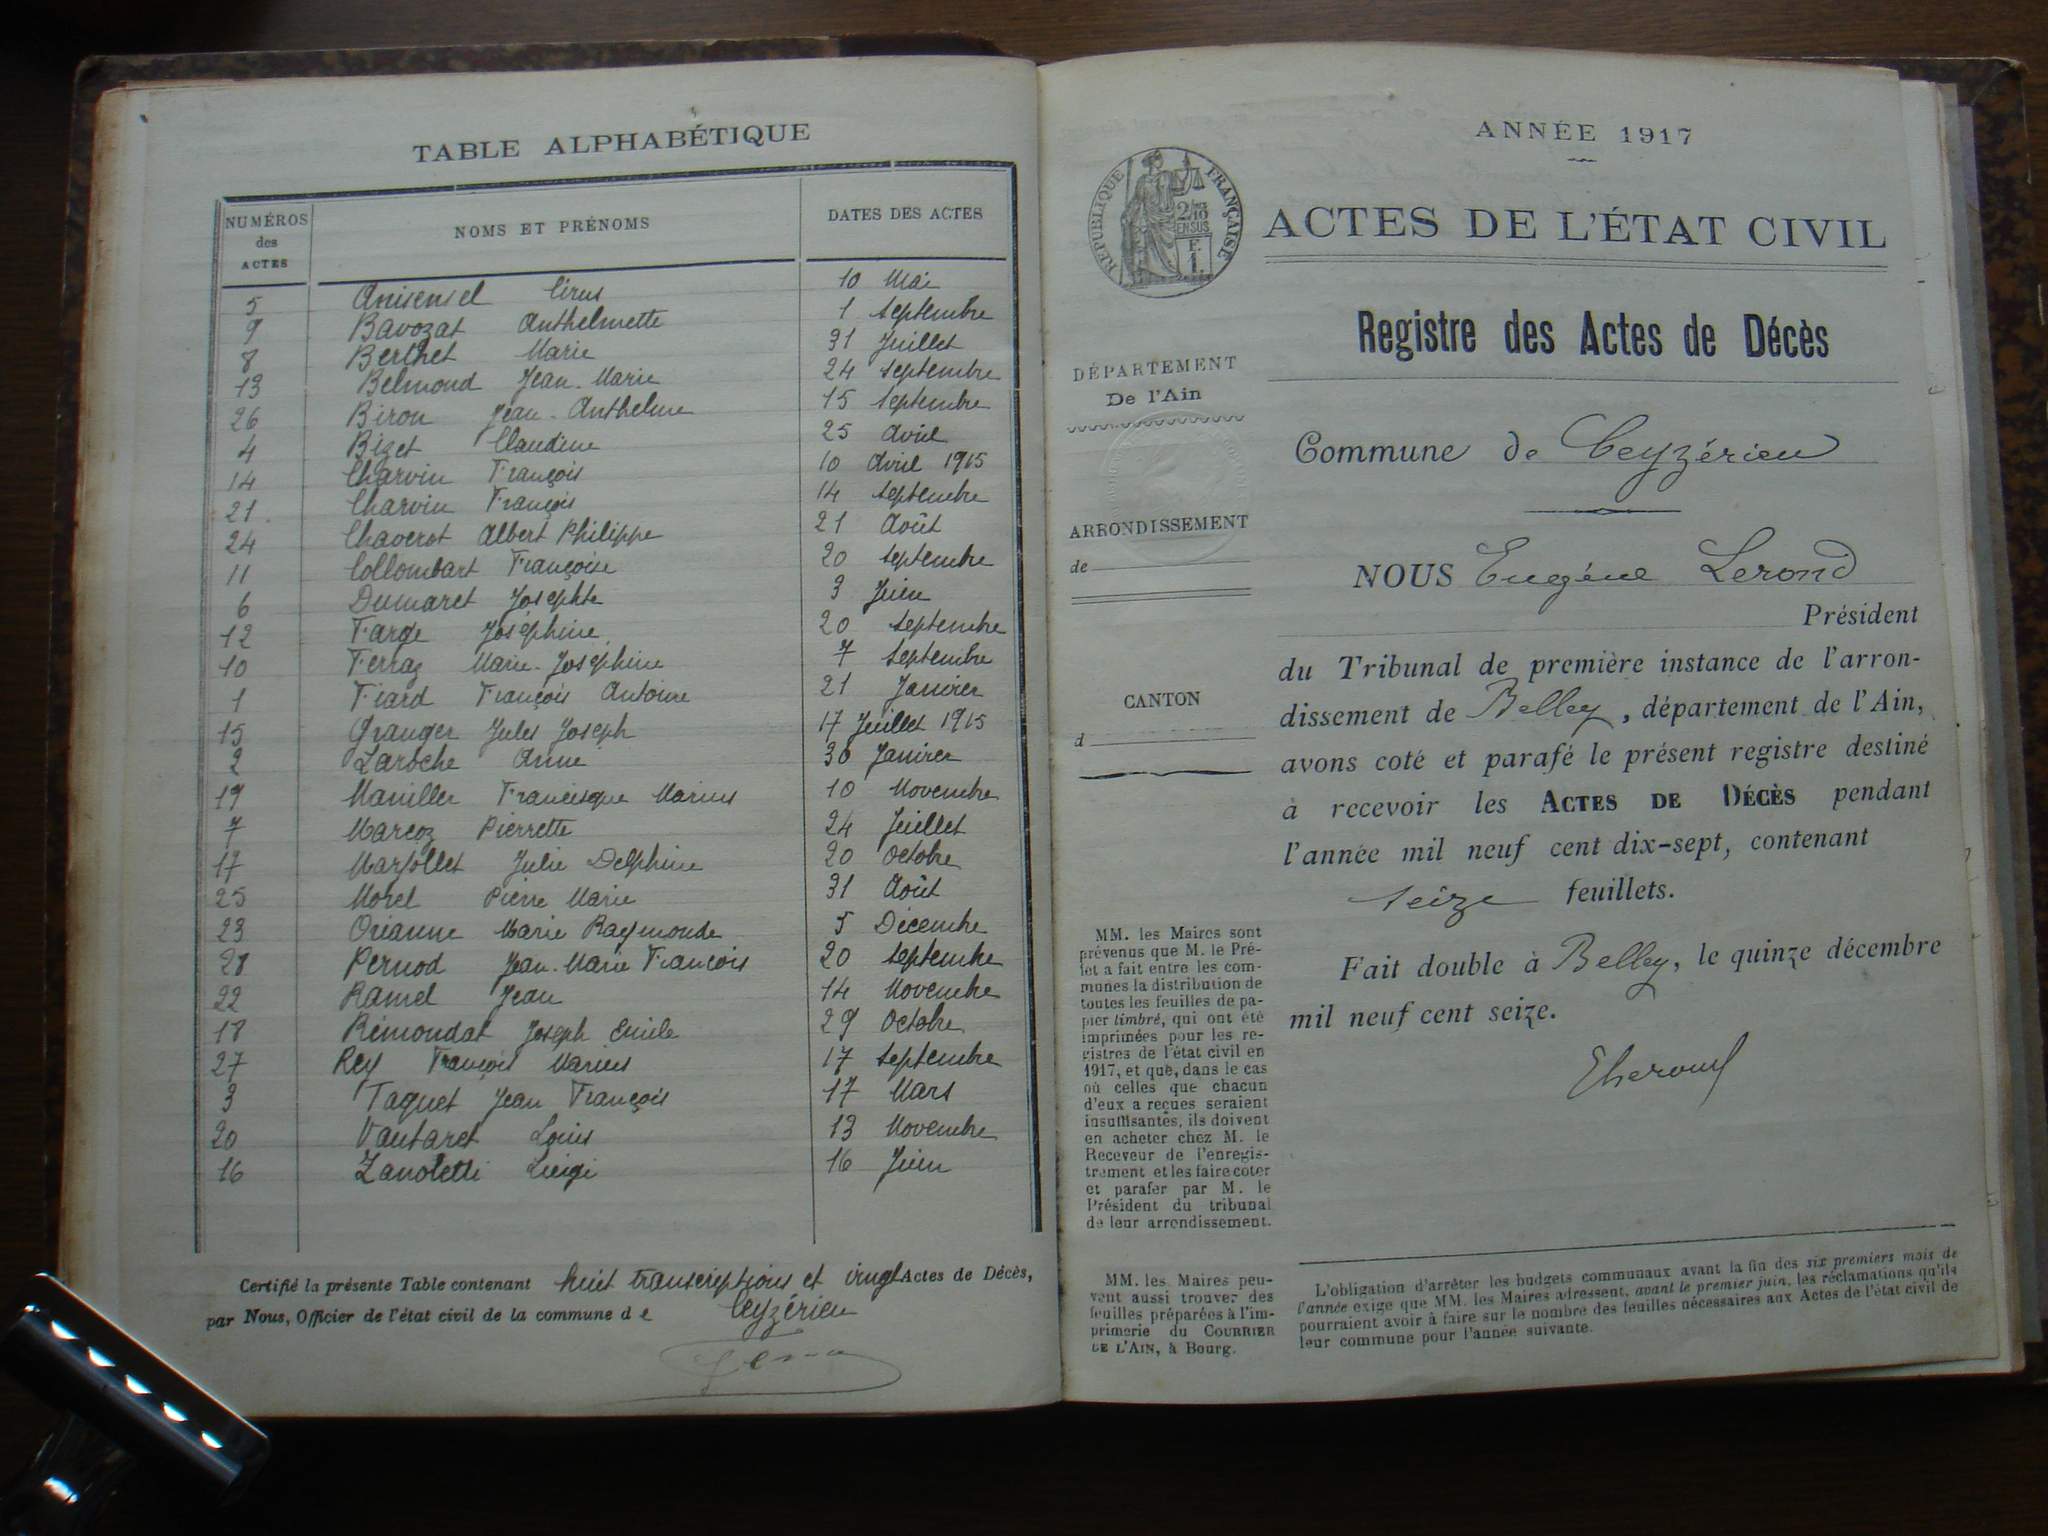 TABLE ALPHABÉTIQUE
NUMÉROS des ACTES NOMS ET PRÉNOMS DATES DES ACTES
5 Anisensel Cirus 10 Mai
9 Bavozat Anthelmette 1 Septembre
8 Berthet Marie 31 Juillet
13 Belmond Jean-Marie 24 Septembre
26 Biron Jean-Anthelme 15 Septembre
4 Bizet Claudine 25 Avril
14 Charvin François 10 Avril 1915
21 Charvin François 14 Septembre
24 Chaverot Albert Philippe 21 Août
11 Collombart Françoise 20 Septembre
6 Dumaret Josephte 3 Juin
12 Farge Joséphine 20 Septembre
10 Ferraz Marie-Joséphine 7 Septembre
1 Fiard François Antoine 21 Janvier
15 Granger Jules Joseph 17 Juillet 1915
2 Laroche Anne 30 Janvier
19 Maniller Francisque Marius 10 Novembre
7 Marcoz Pierrette 24 Juillet
17 Marjollet Julie Delphine 20 Octobre
25 Morel Pierre Marie 31 Août
23 Orianne Marie Raymonde 5 Décembre
28 Pernod Jean-Marie François 20 Septembre
22 Ramel Jean 14 Novembre
18 Rémondat Joseph Emile 29 Octobre
27 Rey François Marius 17 Septembre
3 Taquet Jean François 17 Mars
20 Vautaret Louis 13 Novembre
16 Zanoletti Luigi 16 Juin
Certifié la présente Table contenant huit transcriptions et vingt Actes de Décès,
par Nous, Officier de l'état civil de la commune de Ceyzérieu
ANNÉE 1917
RÉPUBLIQUE FRANÇAISE
2/10 EN SUS
F. 1.
ACTES DE L'ÉTAT CIVIL
Registre des Actes de Décès
DÉPARTEMENT
De l'Ain
ARRONDISSEMENT
de
CANTON
d
Commune de Ceyzérieu
NOUS Eugène Lerond
Président
du Tribunal de première instance de l'arron-
dissement de Belley, département de l'Ain,
avons coté et parafé le présent registre destiné
à recevoir les ACTES DE DÉCÈS pendant
l'année mil neuf cent dix-sept, contenant
seize feuillets.
Fait double à Belley, le quinze décembre
mil neuf cent seize.
MM. les Maires sont
prévenus que M. le Pré-
fet a fait entre les com-
munes la distribution de
toutes les feuilles de pa-
pier timbré, qui ont été
imprimées pour les re-
gistres de l'état civil en
1917, et que, dans le cas
où celles que chacun
d'eux a reçues seraient
insuffisantes, ils doivent
en acheter chez M. le
Receveur de l'enregis-
trement et les faire coter
et parafer par M. le
Président du tribunal
de leur arrondissement.
MM. les Maires peu-
vent aussi trouver des
feuilles préparées à l'im-
primerie du COURRIER
DE L'AIN, à Bourg.
L'obligation d'arrêter les budgets communaux avant la fin des six premiers mois de
l'année exige que MM. les Maires adressent, avant le premier juin, les réclamations qu'ils
pourraient avoir à faire sur le nombre des feuilles nécessaires aux Actes de l'état civil de
leur commune pour l'année suivante.